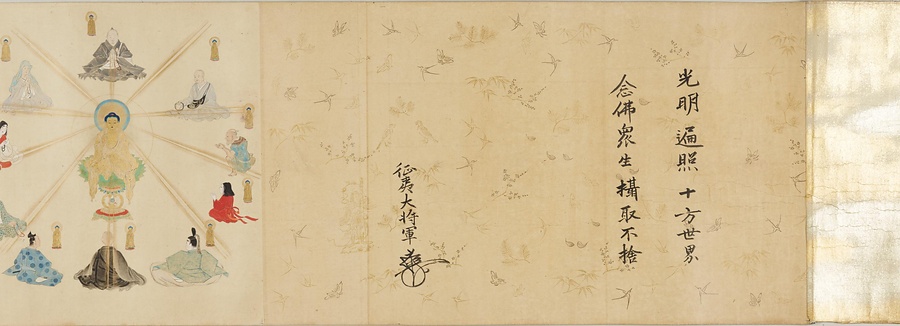 光明遍照十方世界
念佛衆生攝取不捨
征夷大将軍